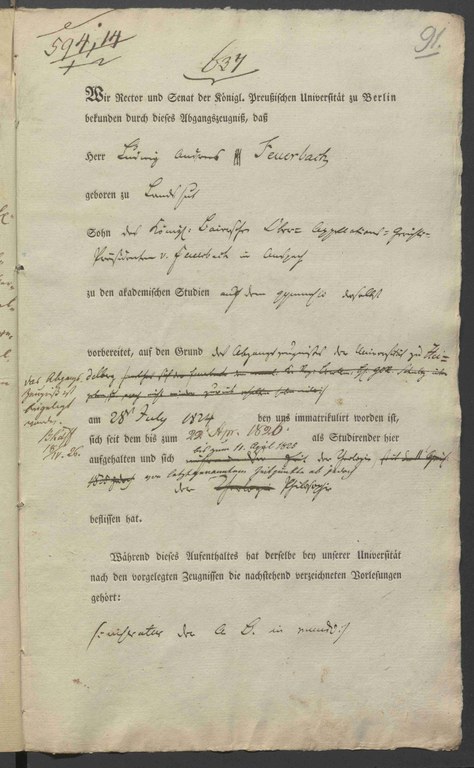 594, 14
91.
637
Wir Rector und Senat der Königl. Preußischen Universität zu Berlin
bekunden durch dieses Abgangszeugniß, daß
Herr Ludwig Andreas Feuerbach
geboren zu Landshut
Sohn des Königl: Bairischen Ober= Appellations=Gerichts-
Präsidenten v. Feuerbach in Anspach
zu den akademischen Studien auf dem gymnasio daselbst
vorbereitet, auf den Grund des Abgangszeugnisses der Universität zu Hei-
delberg
das Abgangs
zeugniß ist
beigelegt
worden.
26.
am 28 July 1824 bey uns immatrikulirt worden ist,
sich seit dem bis zum 22 Apr. 1826. als Studirender hier
bis zum 11 April 1825
aufgehalten und sich der Theologie
von letztgenanntem Zeitpunkte ab jedoch
der Theologie Philosophie
beflissen hat.
Während dieses Aufenthaltes hat derselbe bey unserer Universität
nach den vorgelegten Zeugnissen die nachstehend verzeichneten Vorlesungen
gehört:
der A B. in mundo